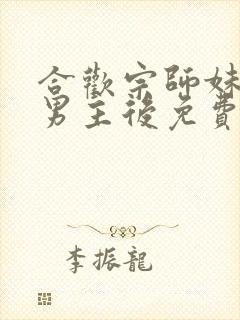 合歡宗師妹
男主後免費
李振龍